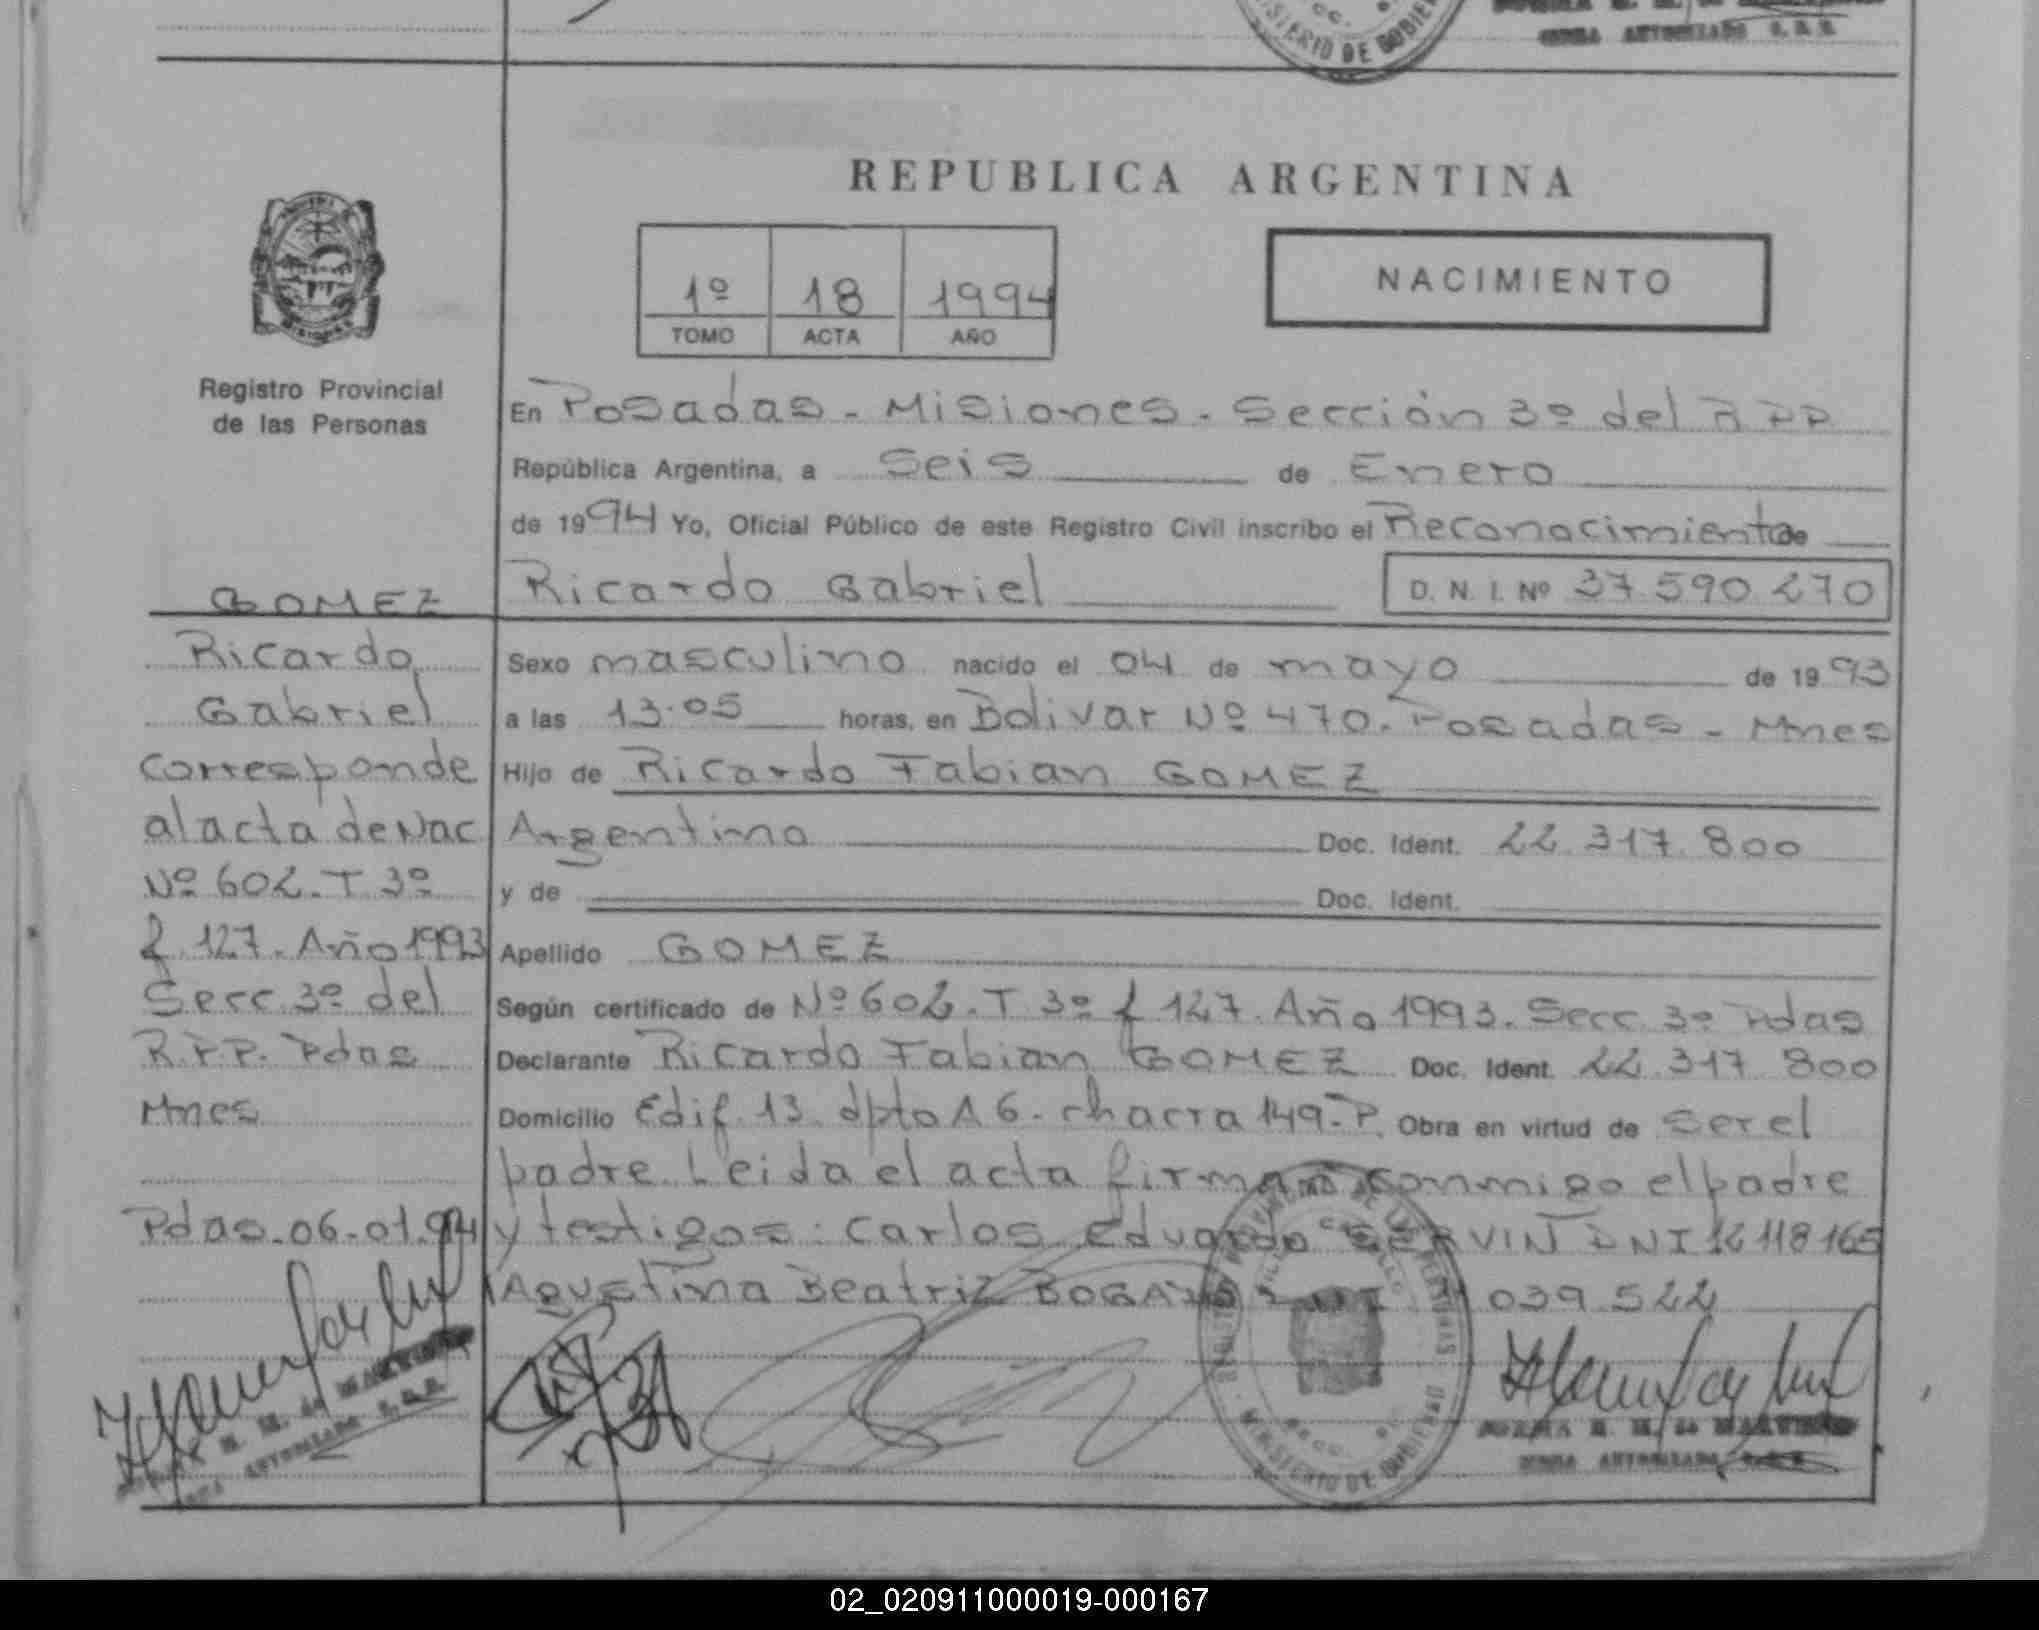 MINISTERIO DE GOBIERNO
REPUBLICA ARGENTINA
1º 18 1994
TOMO ACTA AÑO
NACIMIENTO
Registro Provincial
de las Personas
En Posadas - Misiones - Sección 3º del R P P
República Argentina, a Seis de Enero
de 1994 Yo, Oficial Público de este Registro Civil inscribo el Reconocimiento de
Ricardo Gabriel D. N. I. Nº 37 590 270
Sexo masculino nacido el 04 de mayo de 1993
a las 13.05 horas, en Bolivar Nº 470. Posadas - Mnes
Hijo de Ricardo Fabian GOMEZ
Argentino Doc. Ident. 22 317 800
y de Doc. Ident.
Apellido GOMEZ
Según certificado de Nº 602. T 3º f 127. Año 1993. Secc. 3º Pdas
Declarante Ricardo Fabian GOMEZ Doc. Ident. 22 317 800
Domicilio Edif. 13. dpto A 6 - chacra 149 - P. Obra en virtud de ser el
padre. Leida el acta firman conmigo el padre
y testigos: Carlos Eduardo SERVIN DNI 12 118 165
Agustina Beatriz 039 522
GOMEZ
Ricardo
Gabriel
Corresponde
al acta de Nac
Nº 602. T 3º
f 127. Año 1993
Secc. 3º del
R.P.P. Pdas
Mnes
Pdas. 06-01-94
MINISTERIO DE GOBIERNO
02_020911000019-000167